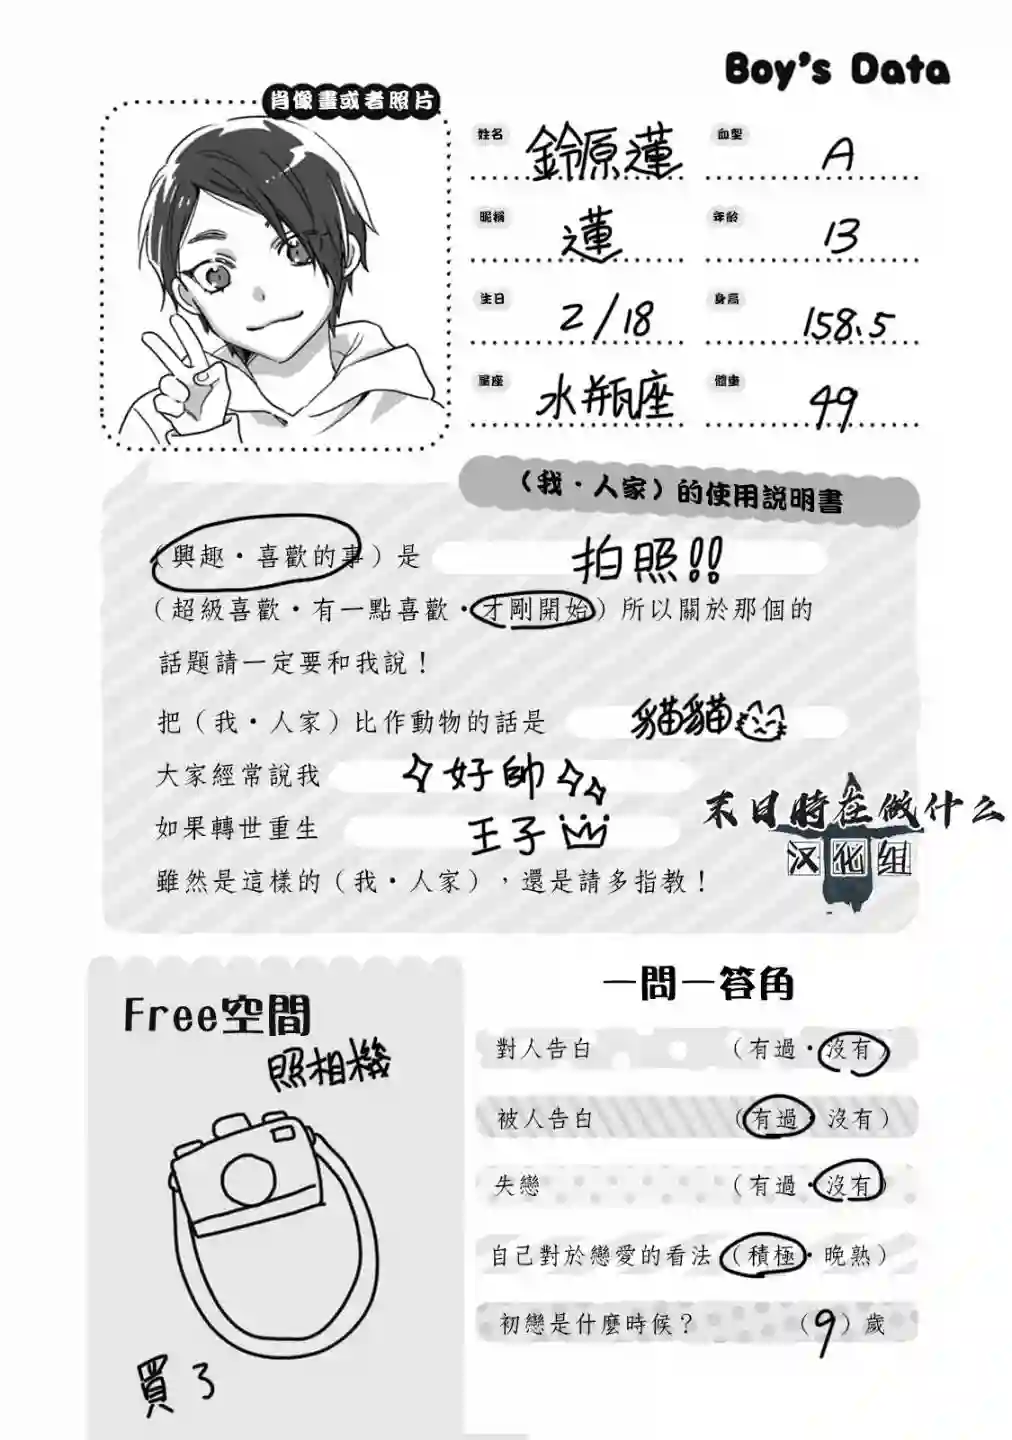 Boy's Data
肖像畫或者照片
姓名 鈴原蓮
血型 A
昵稱 蓮
年齡 13
生日 2/18
身高 158.5
星座 水瓶座
體重 49
（我・人家）的使用説明書
（興趣・喜歡的事）是 拍照!!
（超級喜歡・有一點喜歡・才剛開始）所以關於那個的
話題請一定要和我說！
把（我・人家）比作動物的話是 貓貓
大家經常說我 好帥
如果轉世重生 王子
雖然是這樣的（我・人家），還是請多指教！
末日時在做什么
汉化组
Free空間
照相機
買了
一問一答角
對人告白 （有過・沒有）
被人告白 （有過・沒有）
失戀 （有過・沒有）
自己對於戀愛的看法（積極・晚熟）
初戀是什麼時候？ （9）歲